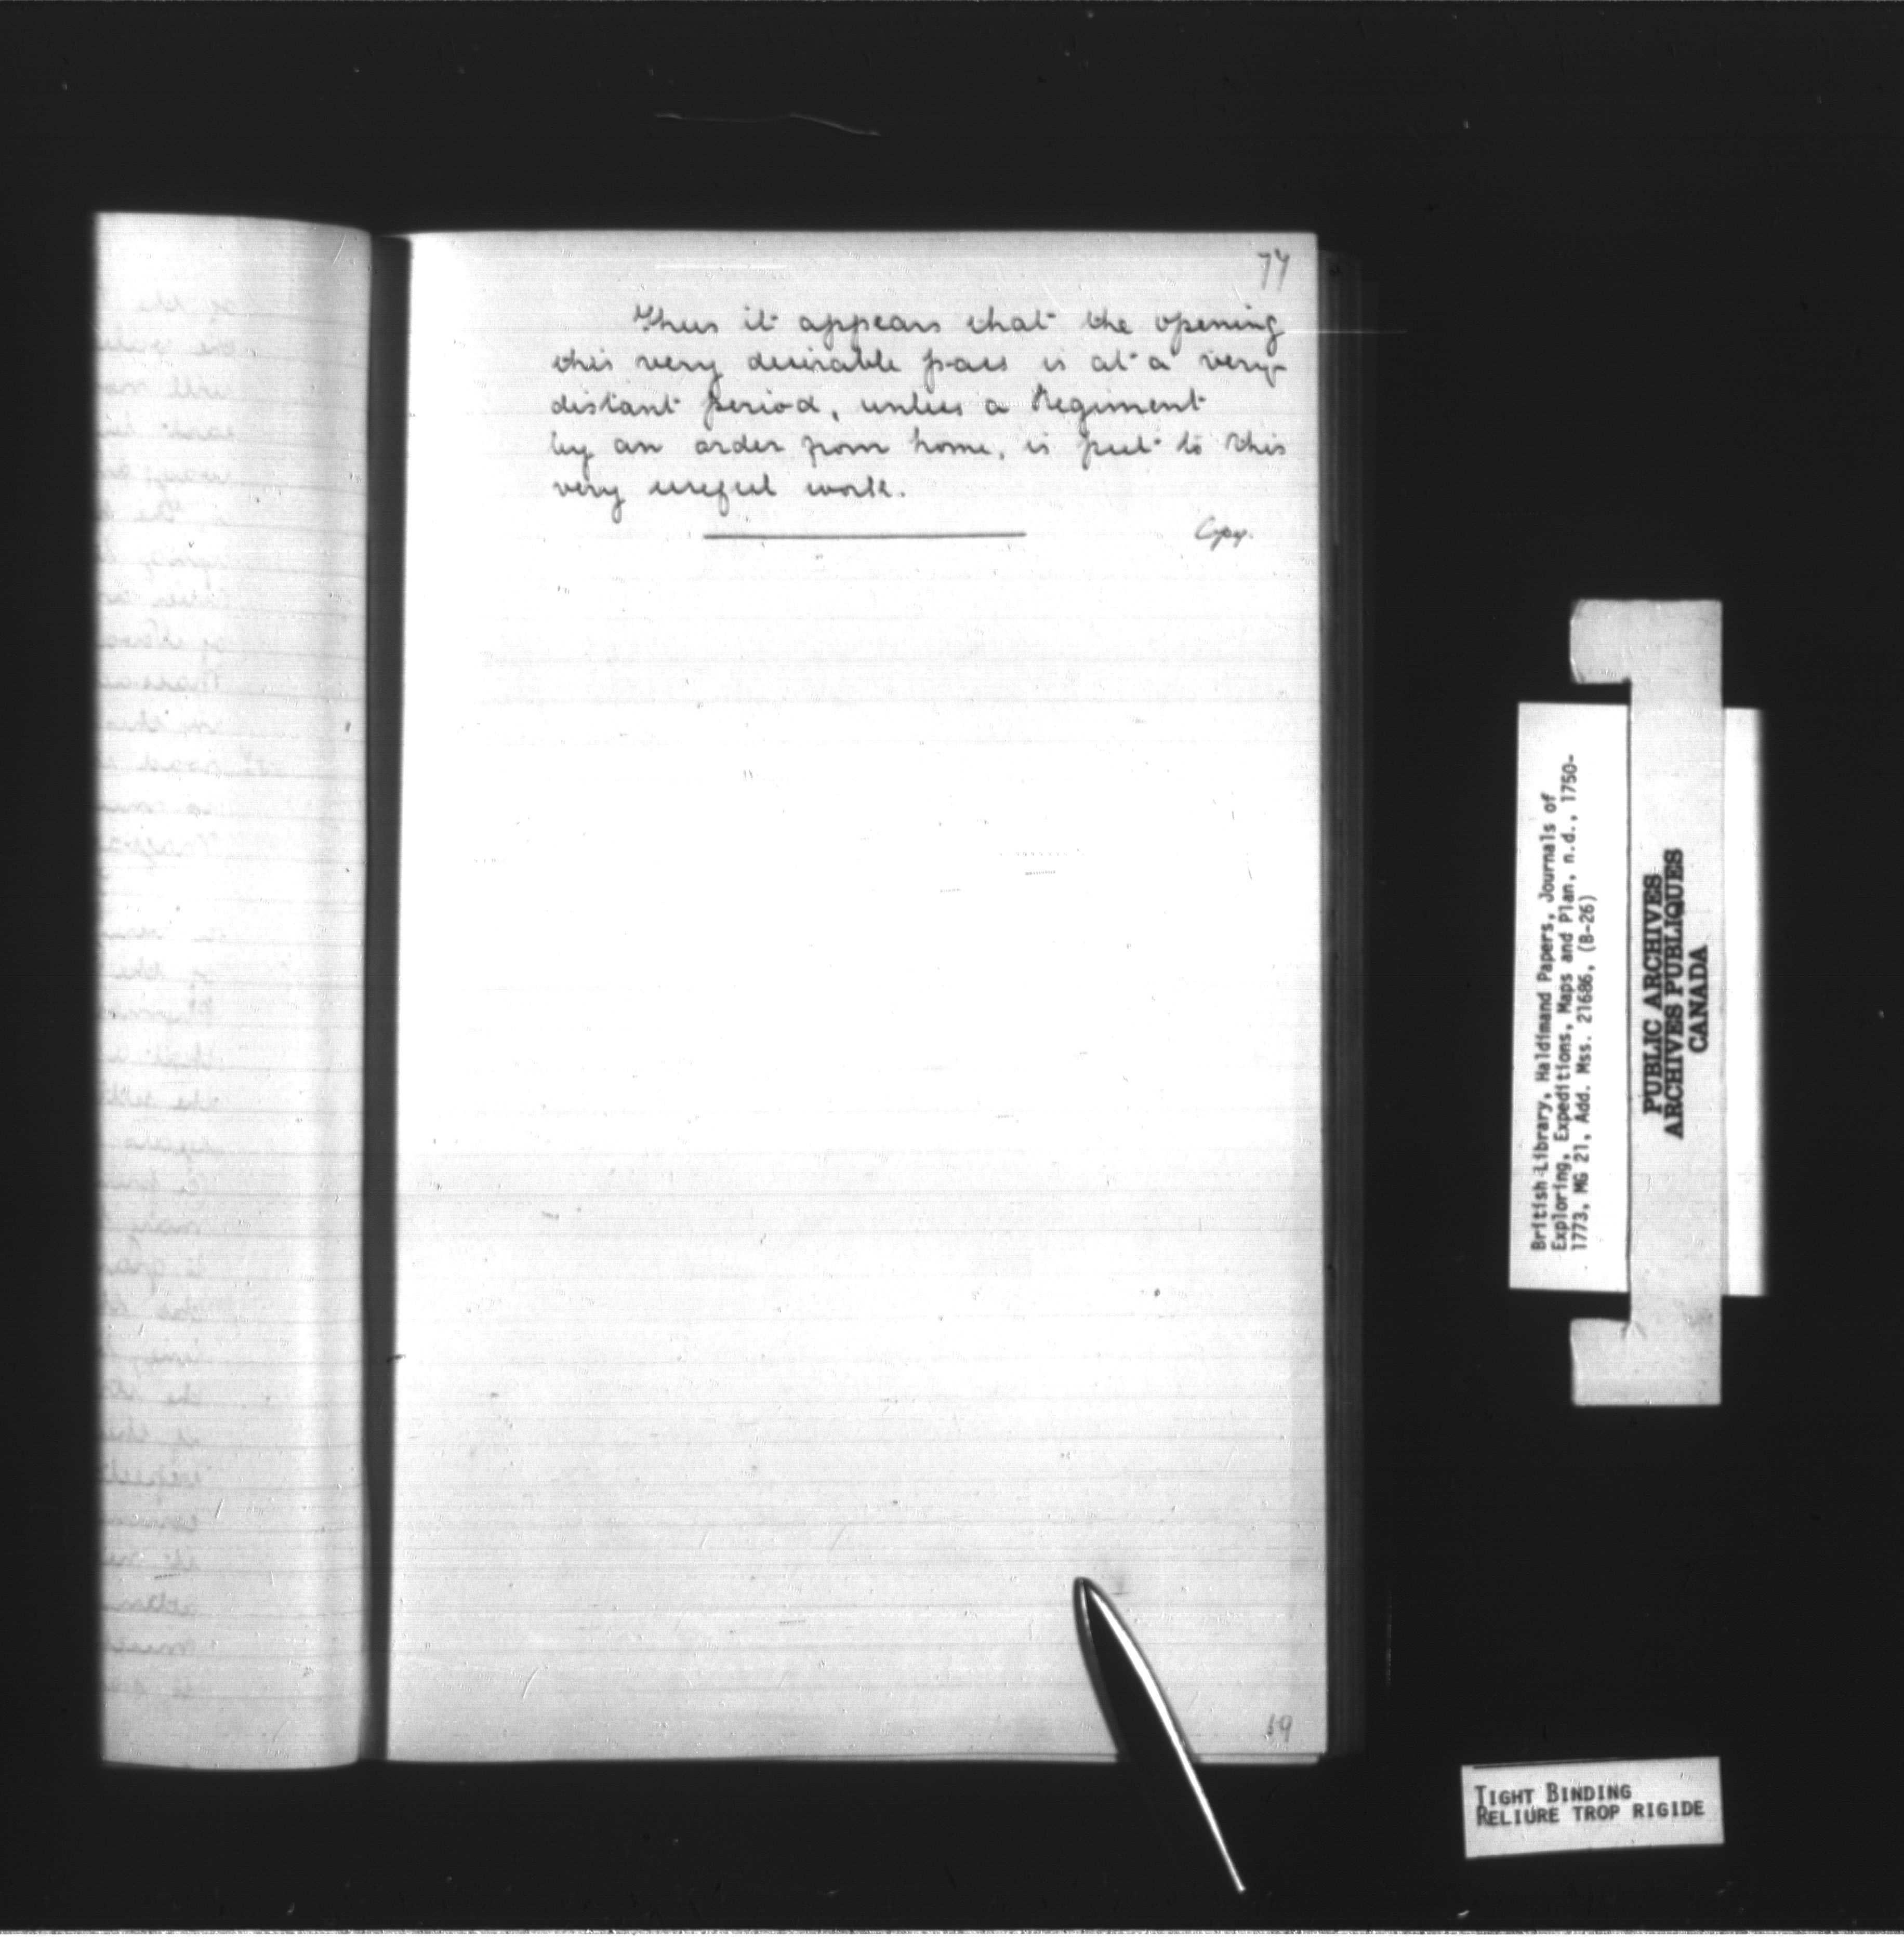 74
Thus it appears that the opening
this very desirable pass is at a very
distant period, unless a Regiment
by an order from home, is put to this
very useful work.
Copy.
69
British Library, Haldimand Papers, Journals of
Exploring, Expeditions, Maps and Plan, n.d., 1750-
1773, MG 21, Add. Mss. 21686, (B-26)
PUBLIC ARCHIVES
ARCHIVES PUBLIQUES
CANADA
TIGHT BINDING
RELIURE TROP RIGIDE